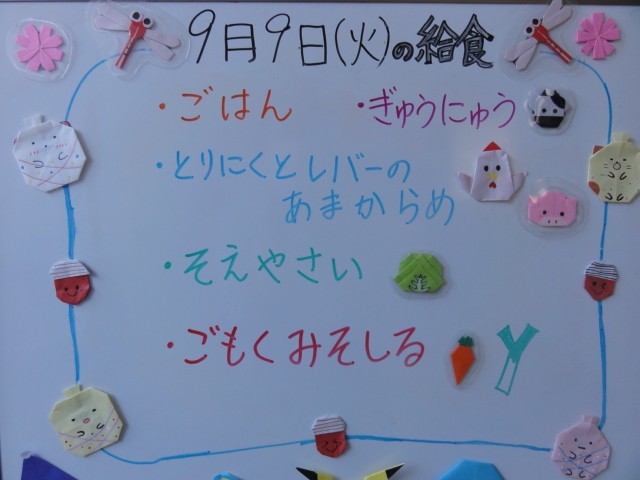 9月9日(火)の給食
・ごはん ・ぎゅうにゅう
・とりにくとレバーの
あまからめ
・そえやさい
・ごもくみそしる